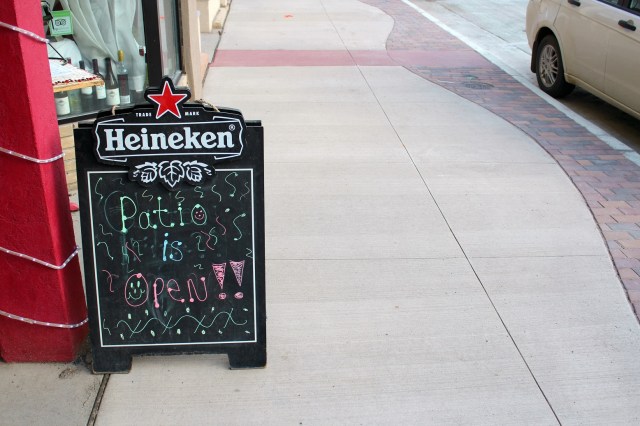 TRADE MARK
Heineken®
Patio
is
Open!!